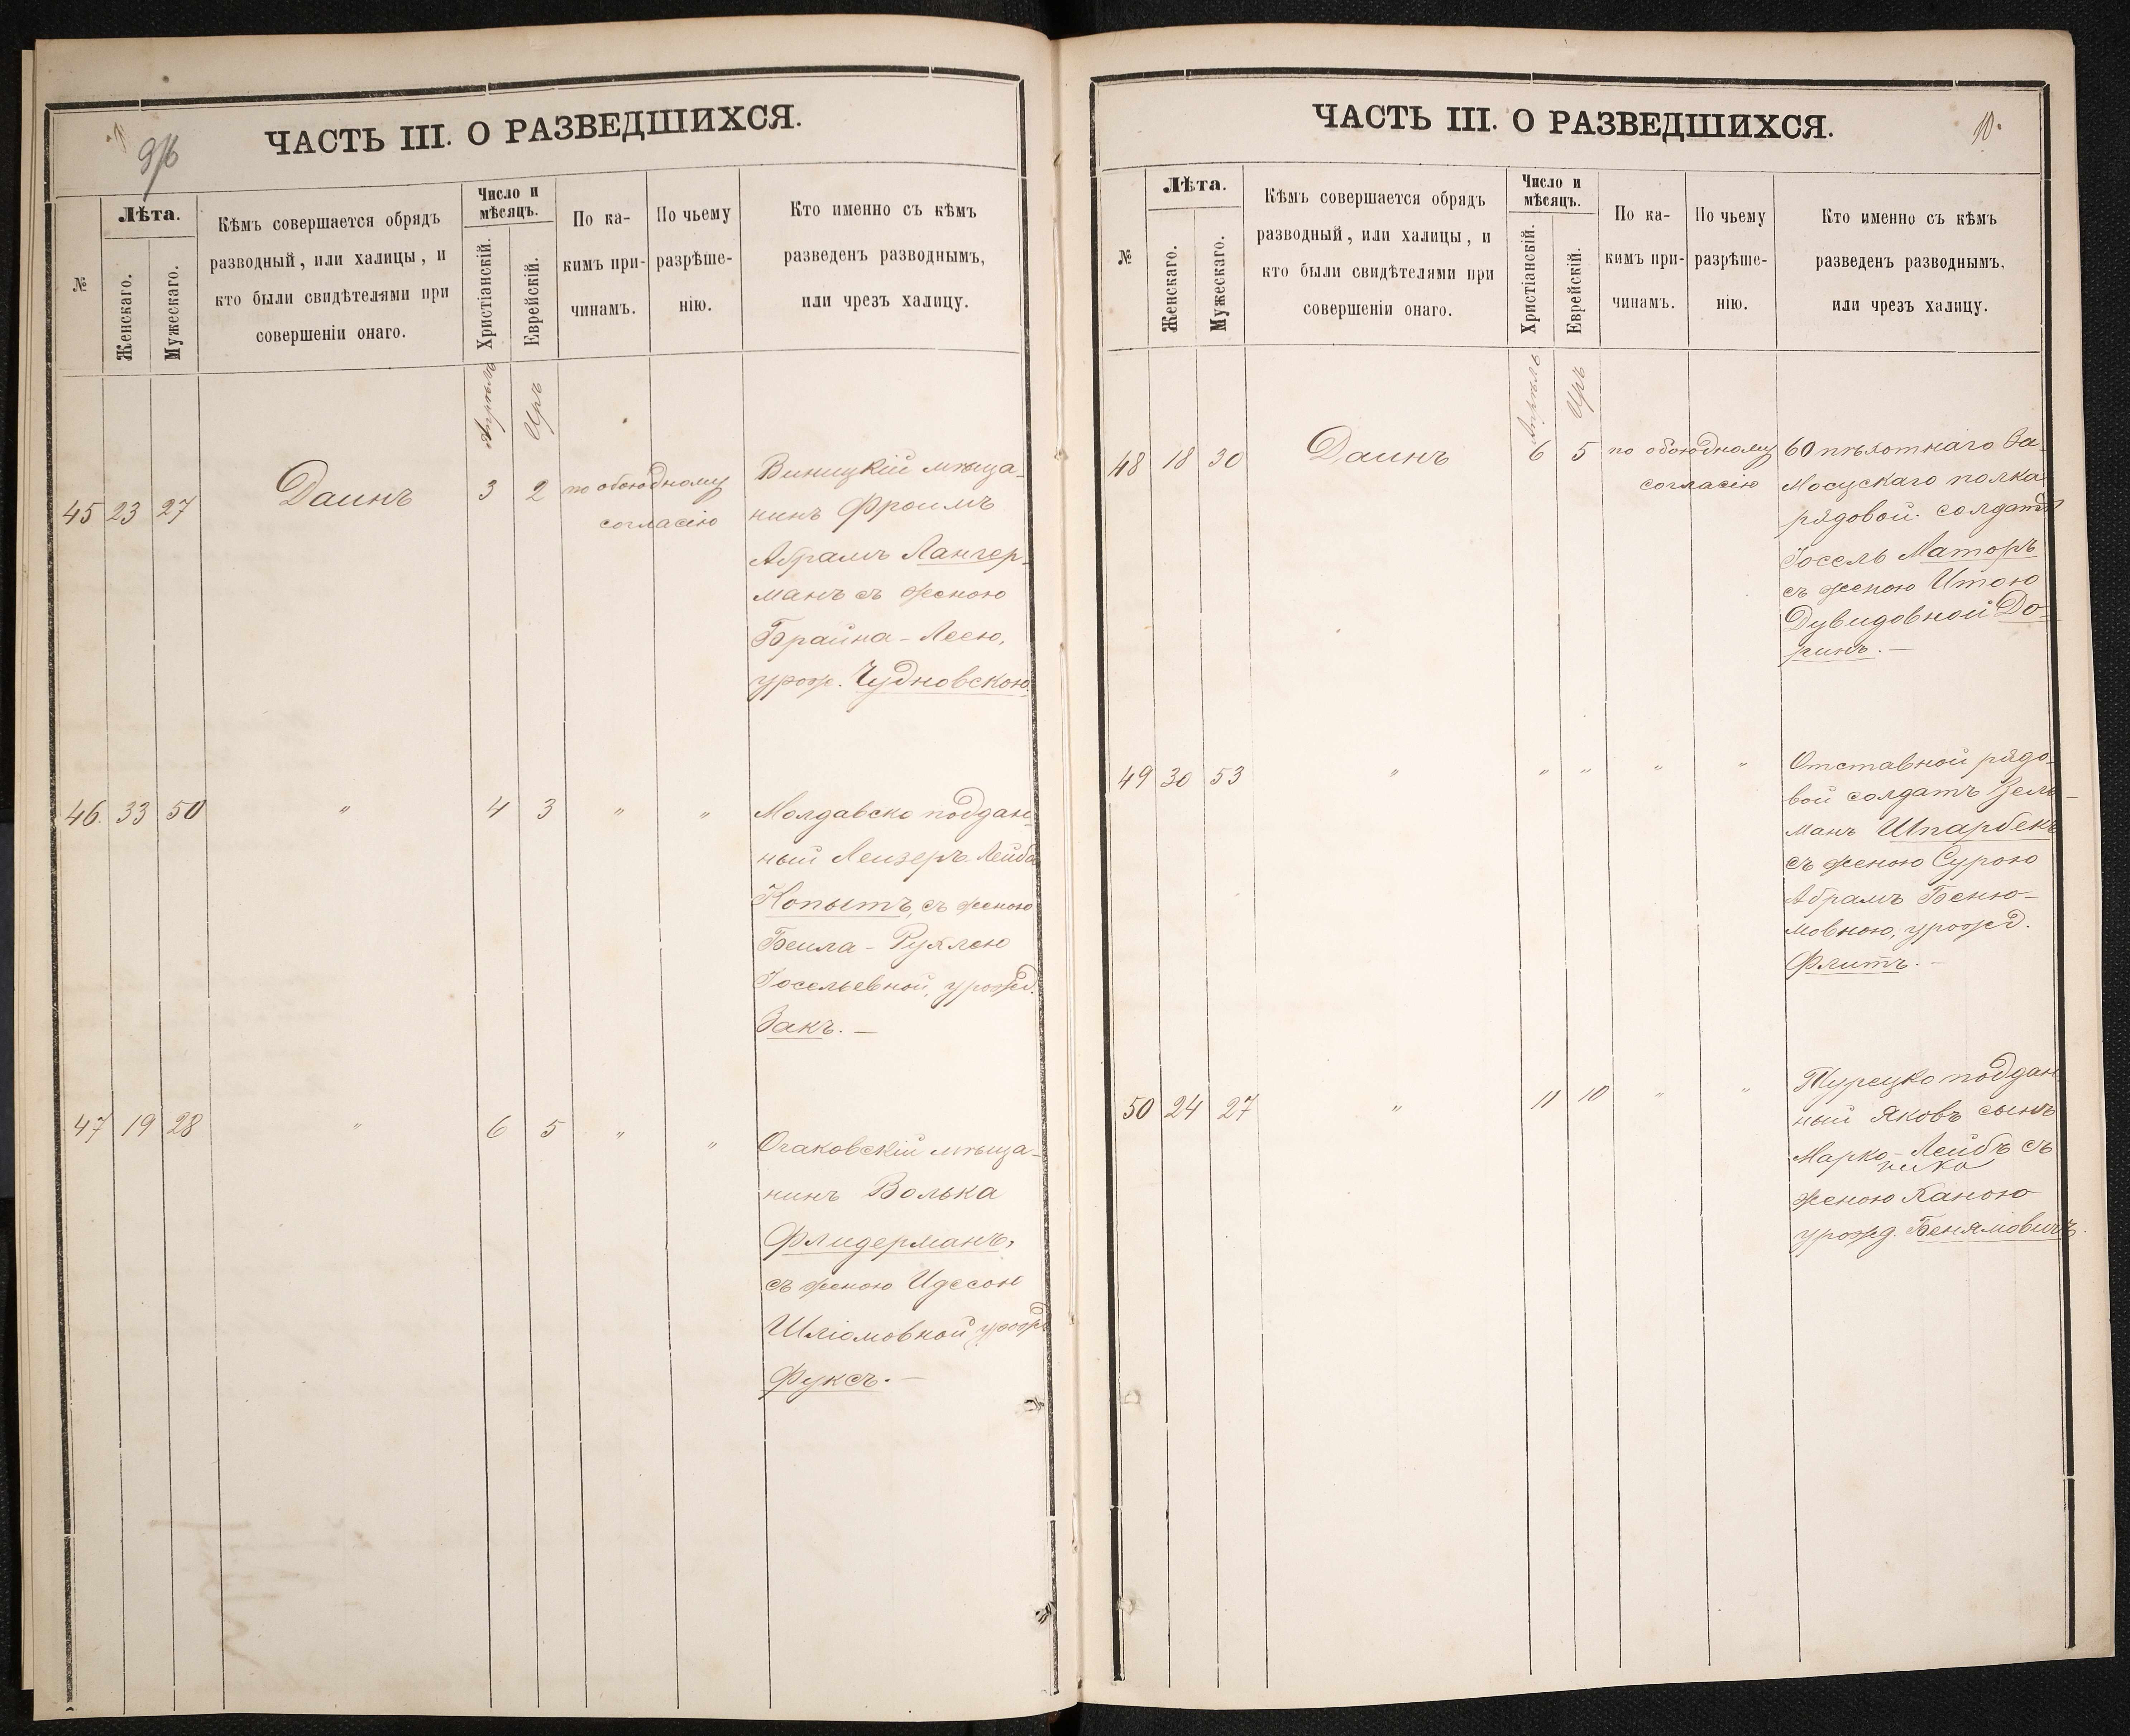 ЧАСТЬ III. О РАЗВЕДШИХСЯ.
№
Лѣта.
Женскаго.
Мужескаго.
Кѣмъ совершается обрядъ
разводный, или халицы, и
кто были свидѣтелями при
совершеніи онаго.
Число и
мѣсяцъ.
Христіанскій.
Еврейскій.
По ка-
кимъ при-
чинамъ.
По чьему
разрѣше-
нію.
Кто именно съ кѣмъ
разведенъ разводнымъ,
или чрезъ халицу.
Апрѣль
Иръ
45 23 27 Даинъ 3 2 по обоюдному
согласію
Виницкій мѣща-
нинъ Фроимъ
Абрамъ Лангер-
манъ съ женою
Брайна-Леею,
урож. Чудновскою.
46. 33 50 " 4 3 " "
Молдавско поддан-
ный Лейзеръ Лейба
Копытъ, съ женою
Беила-Рухлею
Іосельевной, урожд.
Закъ. —
47 19 28 " 6 5 " "
Очаковскій мѣща-
нинъ Волька
Флидерманъ,
съ женою Идесою
Шліомовной, урожд
Фуксъ. —
ЧАСТЬ III. О РАЗВЕДШИХСЯ.
10.
№
Лѣта.
Женскаго.
Мужескаго.
Кѣмъ совершается обрядъ
разводный, или халицы, и
кто были свидѣтелями при
совершеніи онаго.
Число и
мѣсяцъ.
Христіанскій.
Еврейскій.
По ка-
кимъ при-
чинамъ.
По чьему
разрѣше-
нію.
Кто именно съ кѣмъ
разведенъ разводнымъ,
или чрезъ халицу.
Апрѣль
Иръ
48 18 30 Даинъ 6 5 по обоюдному
согласію
60 пѣхотнаго За-
мосцскаго полка
рядовой солдатъ
Іосель Маторъ
съ женою Итою
Дувидовной До-
ринъ. —
49 30 53 " " " " "
Отставной рядо-
вой солдатъ Зель-
манъ Шпарбекъ
съ женою Сурою
Абрамъ Беню-
мовною, урожд.
Флитъ. —
50 24 27 " 11 10 " "
Турецко поддан
ный Яковъ сынъ
Марко-Лейбъ съ
женою Ханою
урожд. Бенямовичъ.